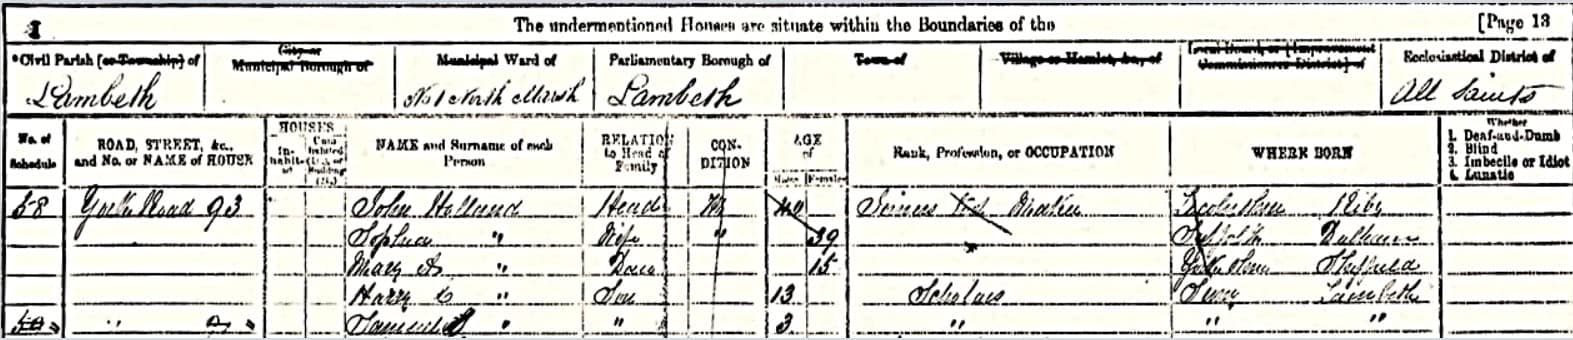 The undermentioned Houses are situate within the Boundaries of the [Page 13
*Civil Parish [or Township] of
Lambeth
City or Municipal Borough of
Municipal Ward of
No 1 North Marsh
Parliamentary Borough of
Lambeth
Town of
Village or Hamlet, &c., of
Local Board, or [Improvement Commissioners District] of
Ecclesiastical District of
All Saints
No. of Schedule
ROAD, STREET, &c., and No. or NAME of HOUSE
HOUSES
In-habit-ed
NAME and Surname of each Person
RELATION to Head of Family
CON-DITION
AGE of
Males Females
Rank, Profession, or OCCUPATION
WHERE BORN
Whether
1. Deaf-and-Dumb
2. Blind
3. Imbecile or Idiot
4. Lunatic
58 York Road 93 John Holland Head M 40 Maker
Sophia " Wife " 39 Suffolk Dalham
Mary A " Daur 15 Sheffield
Harry " Son 13 Scholars Surry Lambeth
" Samuel " " 3 " " "